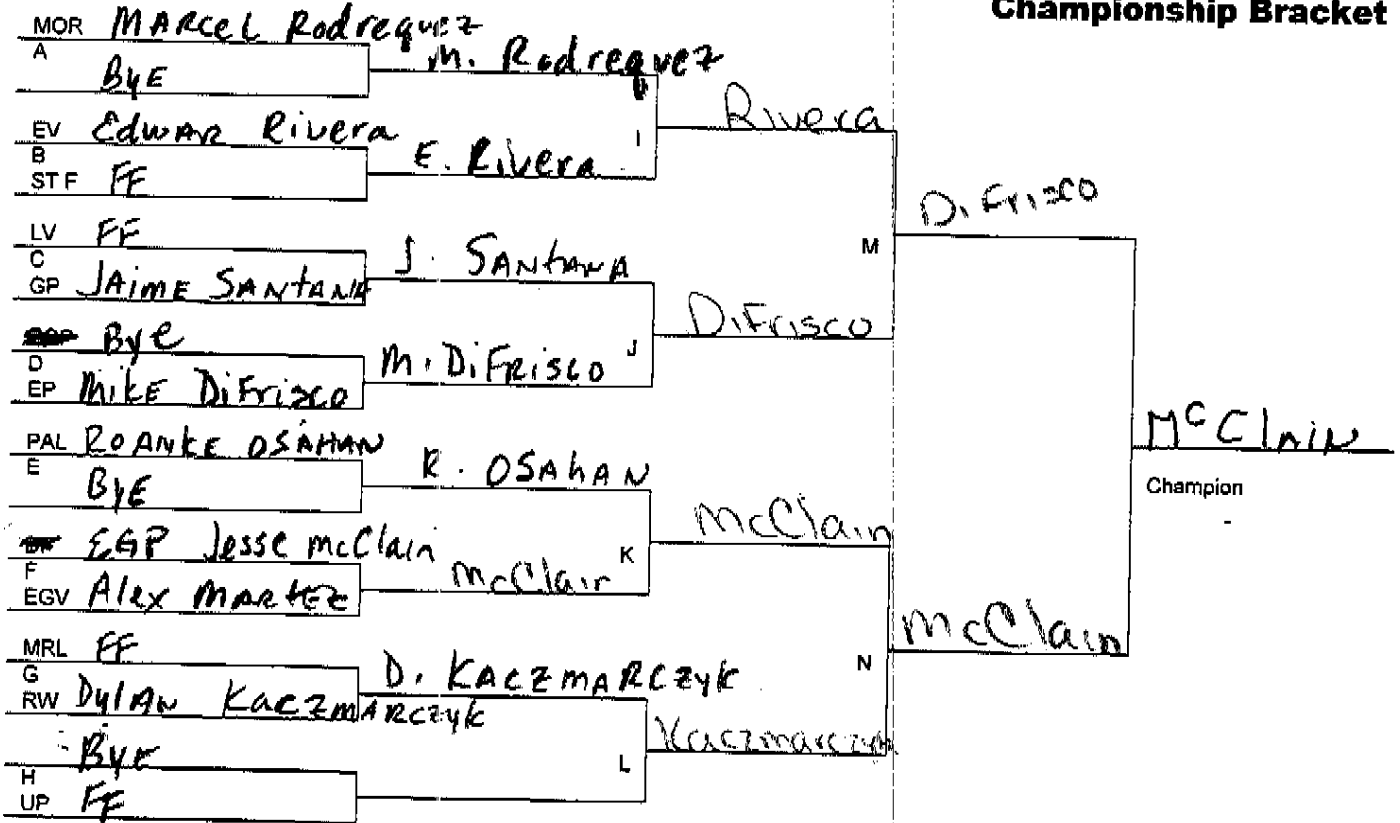 Championship Bracket
MOR MARCEL Rodrequez
A
BYE
M. Rodrequez
EV Edwar Rivera
B
ST F FF
E. Rivera
I
Rivera
LV FF
C
GP JAIME SANTANA
J. SANTANA
Bye
D
EP MIKE DiFrizco
M. DiFRISCO
J
DiFrisco
M
DiFrizco
PAL ROANKE OSAHAN
E
BYE
R. OSAHAN
EGP Jesse McClain
F
EGV Alex MARTEZ
McClair
K
McClain
MRL FF
G
RW DylAN KACZMARCZYK
D. KACZMARCZYK
BYE
H
UP FF
L
Kaczmarczyk
N
McClain
McClAIN
Champion